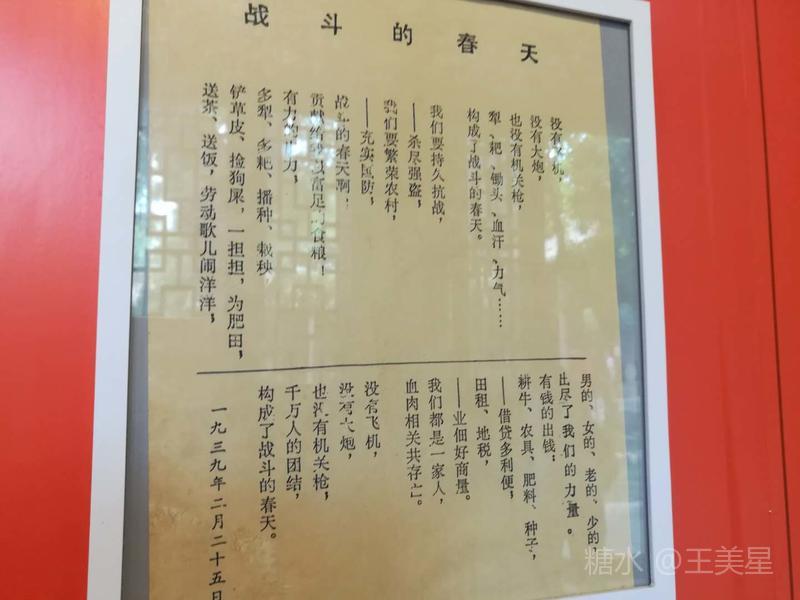 战斗的春天
没有飞机，
没有大炮，
也没有机关枪，
犁、耙、锄头、血汗、力气……
构成了战斗的春天。
我们要持久抗战，
——杀尽强盗，
我们要繁荣农村，
——充实国防，
战斗的春天啊！
贡献给 富足 食粮！
有力 力，
多犁、多耙、播种、栽秧，
铲草皮、捡狗屎，一担担，为肥田，
送茶、送饭，劳动歌儿闹洋洋，
男的、女的、老的、少的，
出尽了我们的力量。
有钱的出钱；
耕牛、农具、肥料、种子，
——借贷多利便，
田租、地税，
——业佃好商量。
我们都是一家人，
血肉相关共存亡。
没有飞机，
没有大炮，
也没有机关枪，
千万人的团结，
构成了战斗的春天。
一九三九年二月二十五日
糖水 @王美星